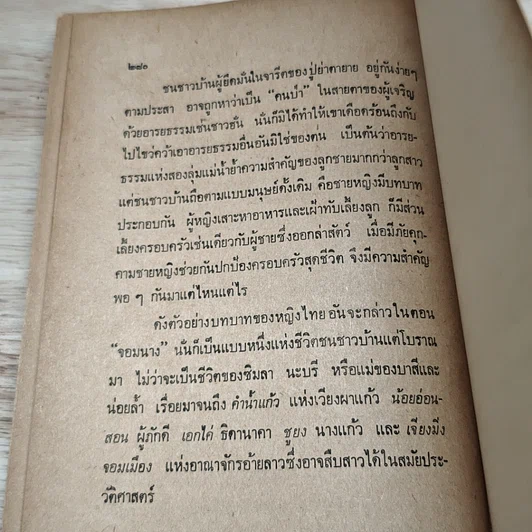 ๒๘๐
ชนชาวบ้านผู้ยึดมั่นในจารีตของปู่ย่าตายาย อยู่กันง่ายๆ
ตามประสา อาจถูกหาว่าเป็น “คนป่า” ในสายตาของผู้เจริญ
ด้วยอารยธรรมเช่นชาวฮั่น นั่นก็มิได้ทำให้เขาเดือดร้อนถึงกับ
ไปไขว่คว้าเอาอารยธรรมอื่นอันมิใช่ของตน เป็นต้นว่าอารย-
ธรรมแห่งสองลุ่มแม่น้ำย้ำความสำคัญของลูกชายมากกว่าลูกสาว
แต่ชนชาวบ้านถือตามแบบมนุษย์ดั้งเดิม คือชายหญิงมีบทบาท
ประกอบกัน ผู้หญิงเสาะหาอาหารและเฝ้าทับเลี้ยงลูก ก็มีส่วน
เลี้ยงครอบครัวเช่นเดียวกับผู้ชายซึ่งออกล่าสัตว์ เมื่อมีภัยคุก-
คามชายหญิงช่วยกันปกป้องครอบครัวสุดชีวิต จึงมีความสำคัญ
พอ ๆ กันมาแต่ไหนแต่ไร
ดังตัวอย่างบทบาทของหญิงไทย อันจะกล่าวในตอน
“จอมนาง” นั่นก็เป็นแบบหนึ่งแห่งชีวิตชนชาวบ้านแต่โบราณ
มา ไม่ว่าจะเป็นชีวิตของซิมลา นะบรี หรือแม่ของบาสีและ
น่อยล้ำ เรื่อยมาจนถึง คำน้ำแก้ว แห่งเวียงผาแก้ว น้อยอ่อน-
สอน ผู้ภักดี เอกไค่ ธิดานาคา ชูยง นางแก้ว และ เจียงมิ่ง
จอมเมือง แห่งอาณาจักรอ้ายลาวซึ่งอาจสืบสาวได้ในสมัยประ-
วัติศาสตร์